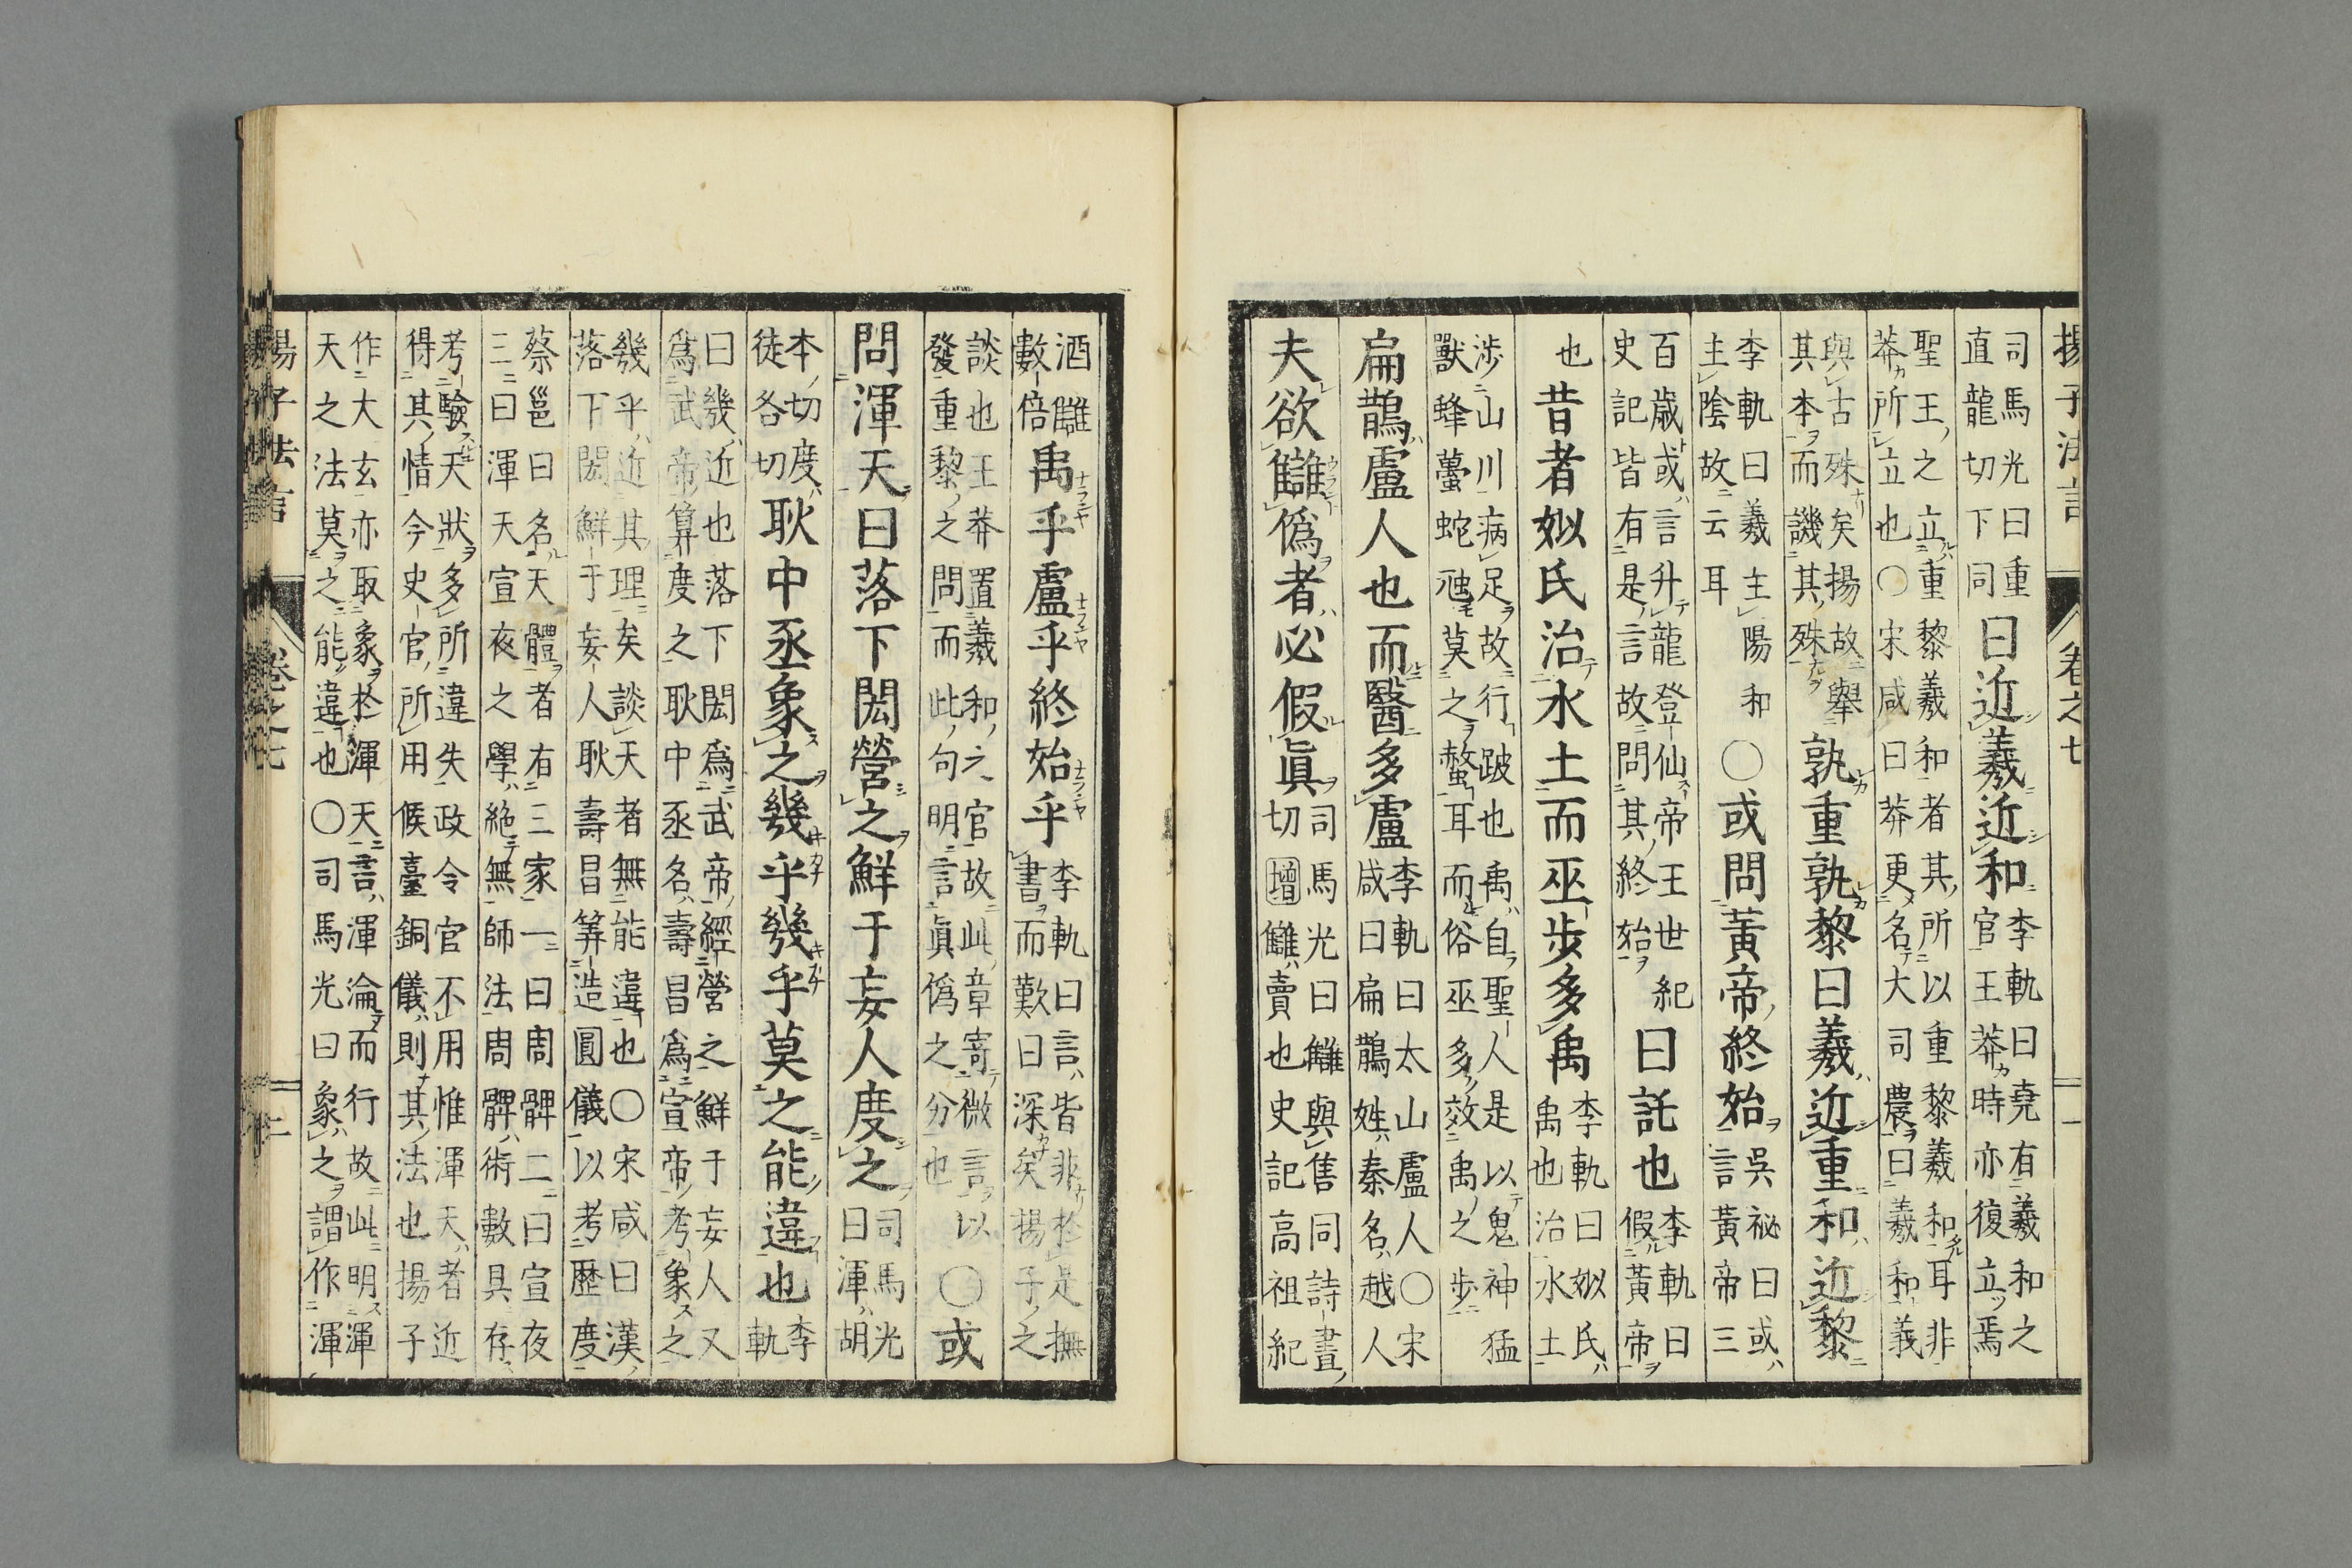 揚子法言 卷之七 一
司馬光曰重
直龍切下同
曰近羲近和
李軌曰堯有羲和之
官王莽時亦復立焉
聖王之立重黎羲和者其所以重黎羲和耳非
莽所立也〇宋咸曰莽更名大司農曰羲和義
與古殊矣揚故舉
其本而譏其殊
孰重孰黎曰羲近重和近黎
李軌曰羲主陽和
主陰故云耳
〇或問黃帝終始
吳祕曰或
言黃帝三
百歲或言升龍登仙帝王世紀
史記皆有是言故問其終始
曰託也
李軌曰
假黃帝
也
昔者姒氏治水土而巫步多禹
李軌曰姒氏
禹也治水土
涉山川病足故行跛也禹自聖人是以鬼神猛
獸蜂蠆蛇虺莫之螫耳而俗巫多效禹之步
扁鵲盧人也而醫多盧
李軌曰太山盧人〇宋
咸曰扁鵲姓秦名越人
夫欲讎僞者必假眞
司馬光曰讎與售同詩晝
切增讎賣也史記高祖紀
酒讎
數倍
禹乎盧乎終始乎
李軌曰言皆非於是撫
書而歎曰深矣揚子之
談也王莽置羲和之官故此章寄微言以
發重黎之問而此句明言眞僞之分也
〇或
問渾天曰落下閎營之鮮于妄人度之
司馬光
曰渾胡
本切度
徒各切
耿中丞象之幾乎幾乎莫之能違也
李
軌
曰幾近也落下閎爲武帝經營之鮮于妄人又
爲武帝算度之耿中丞名壽昌爲宣帝考象之
幾乎近其理矣談天者無能違也〇宋咸曰漢
落下閎鮮于妄人耿壽昌筭造圓儀以考歷度
蔡邕曰名天體者有三家一曰周髀二曰宣夜
三曰渾天宣夜之學絶無師法周髀術數具存
考驗天狀多所違失政令官不用惟渾天者近
得其情今史官所用候臺銅儀則其法也揚子
作大玄亦取象於渾天言渾淪而行故此明渾
天之法莫之能違也〇司馬光曰象之謂作渾
揚子法言 卷之七 二